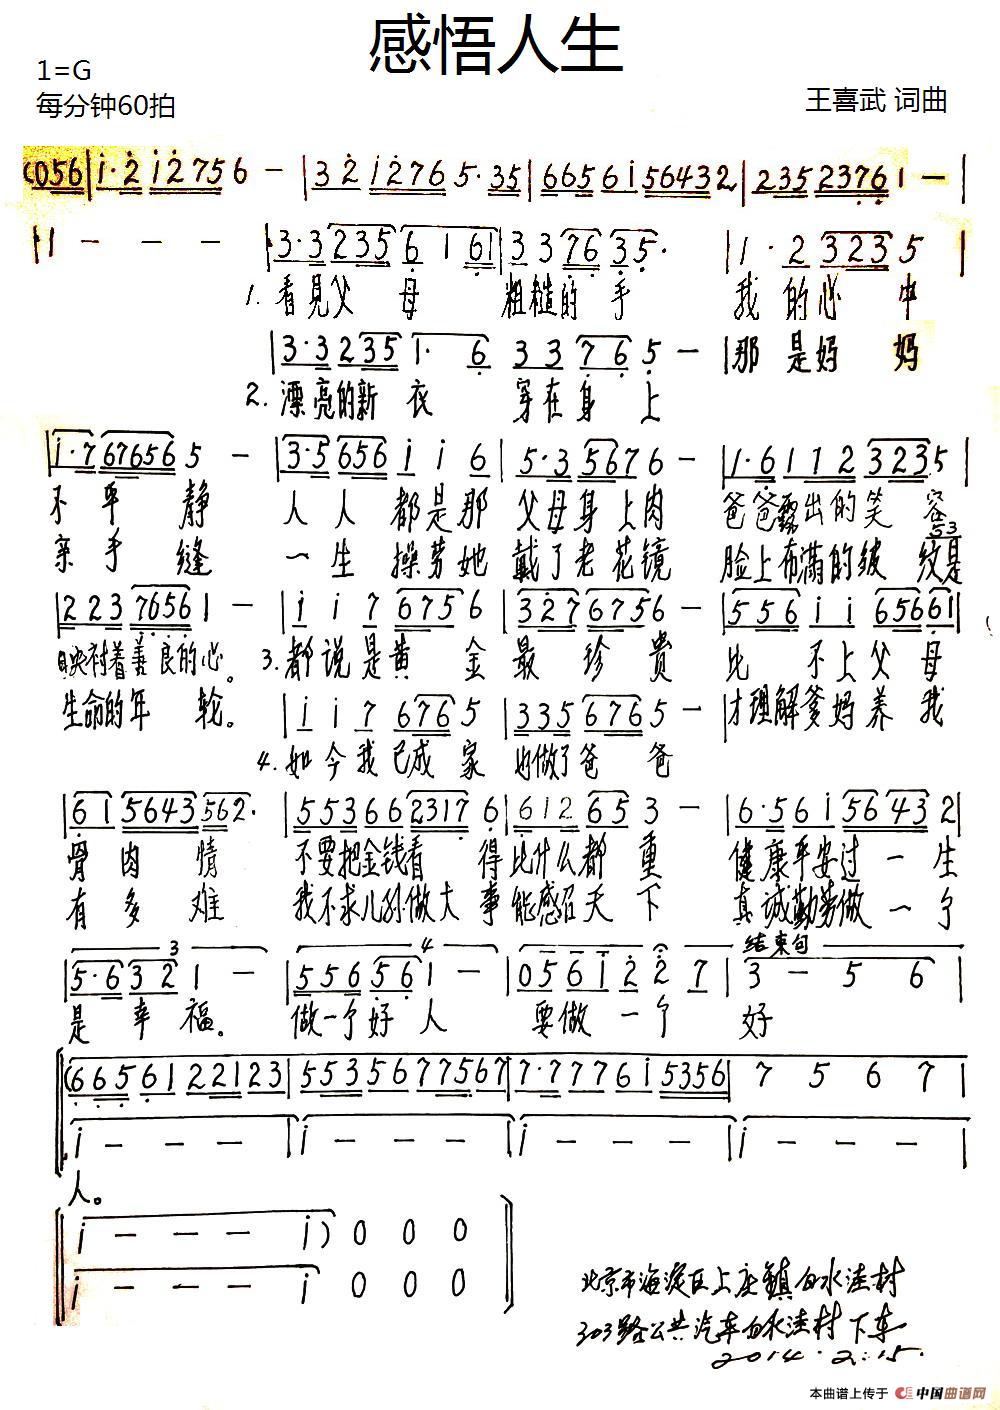 感悟人生
1=G
每分钟60拍
王喜武 词曲
(056 | i·2 i2756 - | 32 i276 5·35 | 6656i 56432 | 235 2376 1 - |
1 - - - | 3·3 235 6 1 61 | 3 3 76 35· | 1·2 323 5
1.看見父 母 粗糙的 手 我 的心 中
3·3 235 1· 6 3 3 7 6 5 - 那 是妈 妈
2.漂亮的新 衣 穿在身 上
i·7 67656 5 - | 3·5 656 i i 6 | 5·3 567 6 - | 1·6 112 323 5
不 平 静 人 人 都是那 父母身上肉 爸爸露出的笑 容
53
亲 手 缝 一 生 操劳她 戴了老花镜 脸上布满的皱 纹是
223 7656 1 - | i i 7 675 6 | 327 675 6 - | 556 i i 656 61
映衬着善良的心。 3.都说是黄 金 最 珍 贵 比 不上父 母
生命的年 轮。 i i 7 676 5 335 676 5 - 才理解爹妈养 我
4.如今我已成 家 也做了爸 爸
61 5643 562· | 55366 2317 6 | 612 65 3 - | 6·56i 5643 2
骨 肉 情 不要把金钱看 得比什么都 重 健康平安过 一 生
有 多 难 我不求儿孙做大 事能感召天 下 真诚勤劳做 一 个
3 4 结束句
5·6 32 1 - | 556 56 1 - | 056i 2 2 7 | 3 - 5 6
是 幸 福。 做一个好 人 要做 一 个 好
(665612 2123 | 553567 7567 | 7·7776i 5356 | 7 5 6 7
i - - - | i - - - | i - - - | i - - -
人。
i - - - i) 0 0 0
i - - - i 0 0 0
北京市海淀区上庄镇白水洼村
303路公共汽车白水洼村下车
2014.2.15.
本曲谱上传于 中国曲谱网